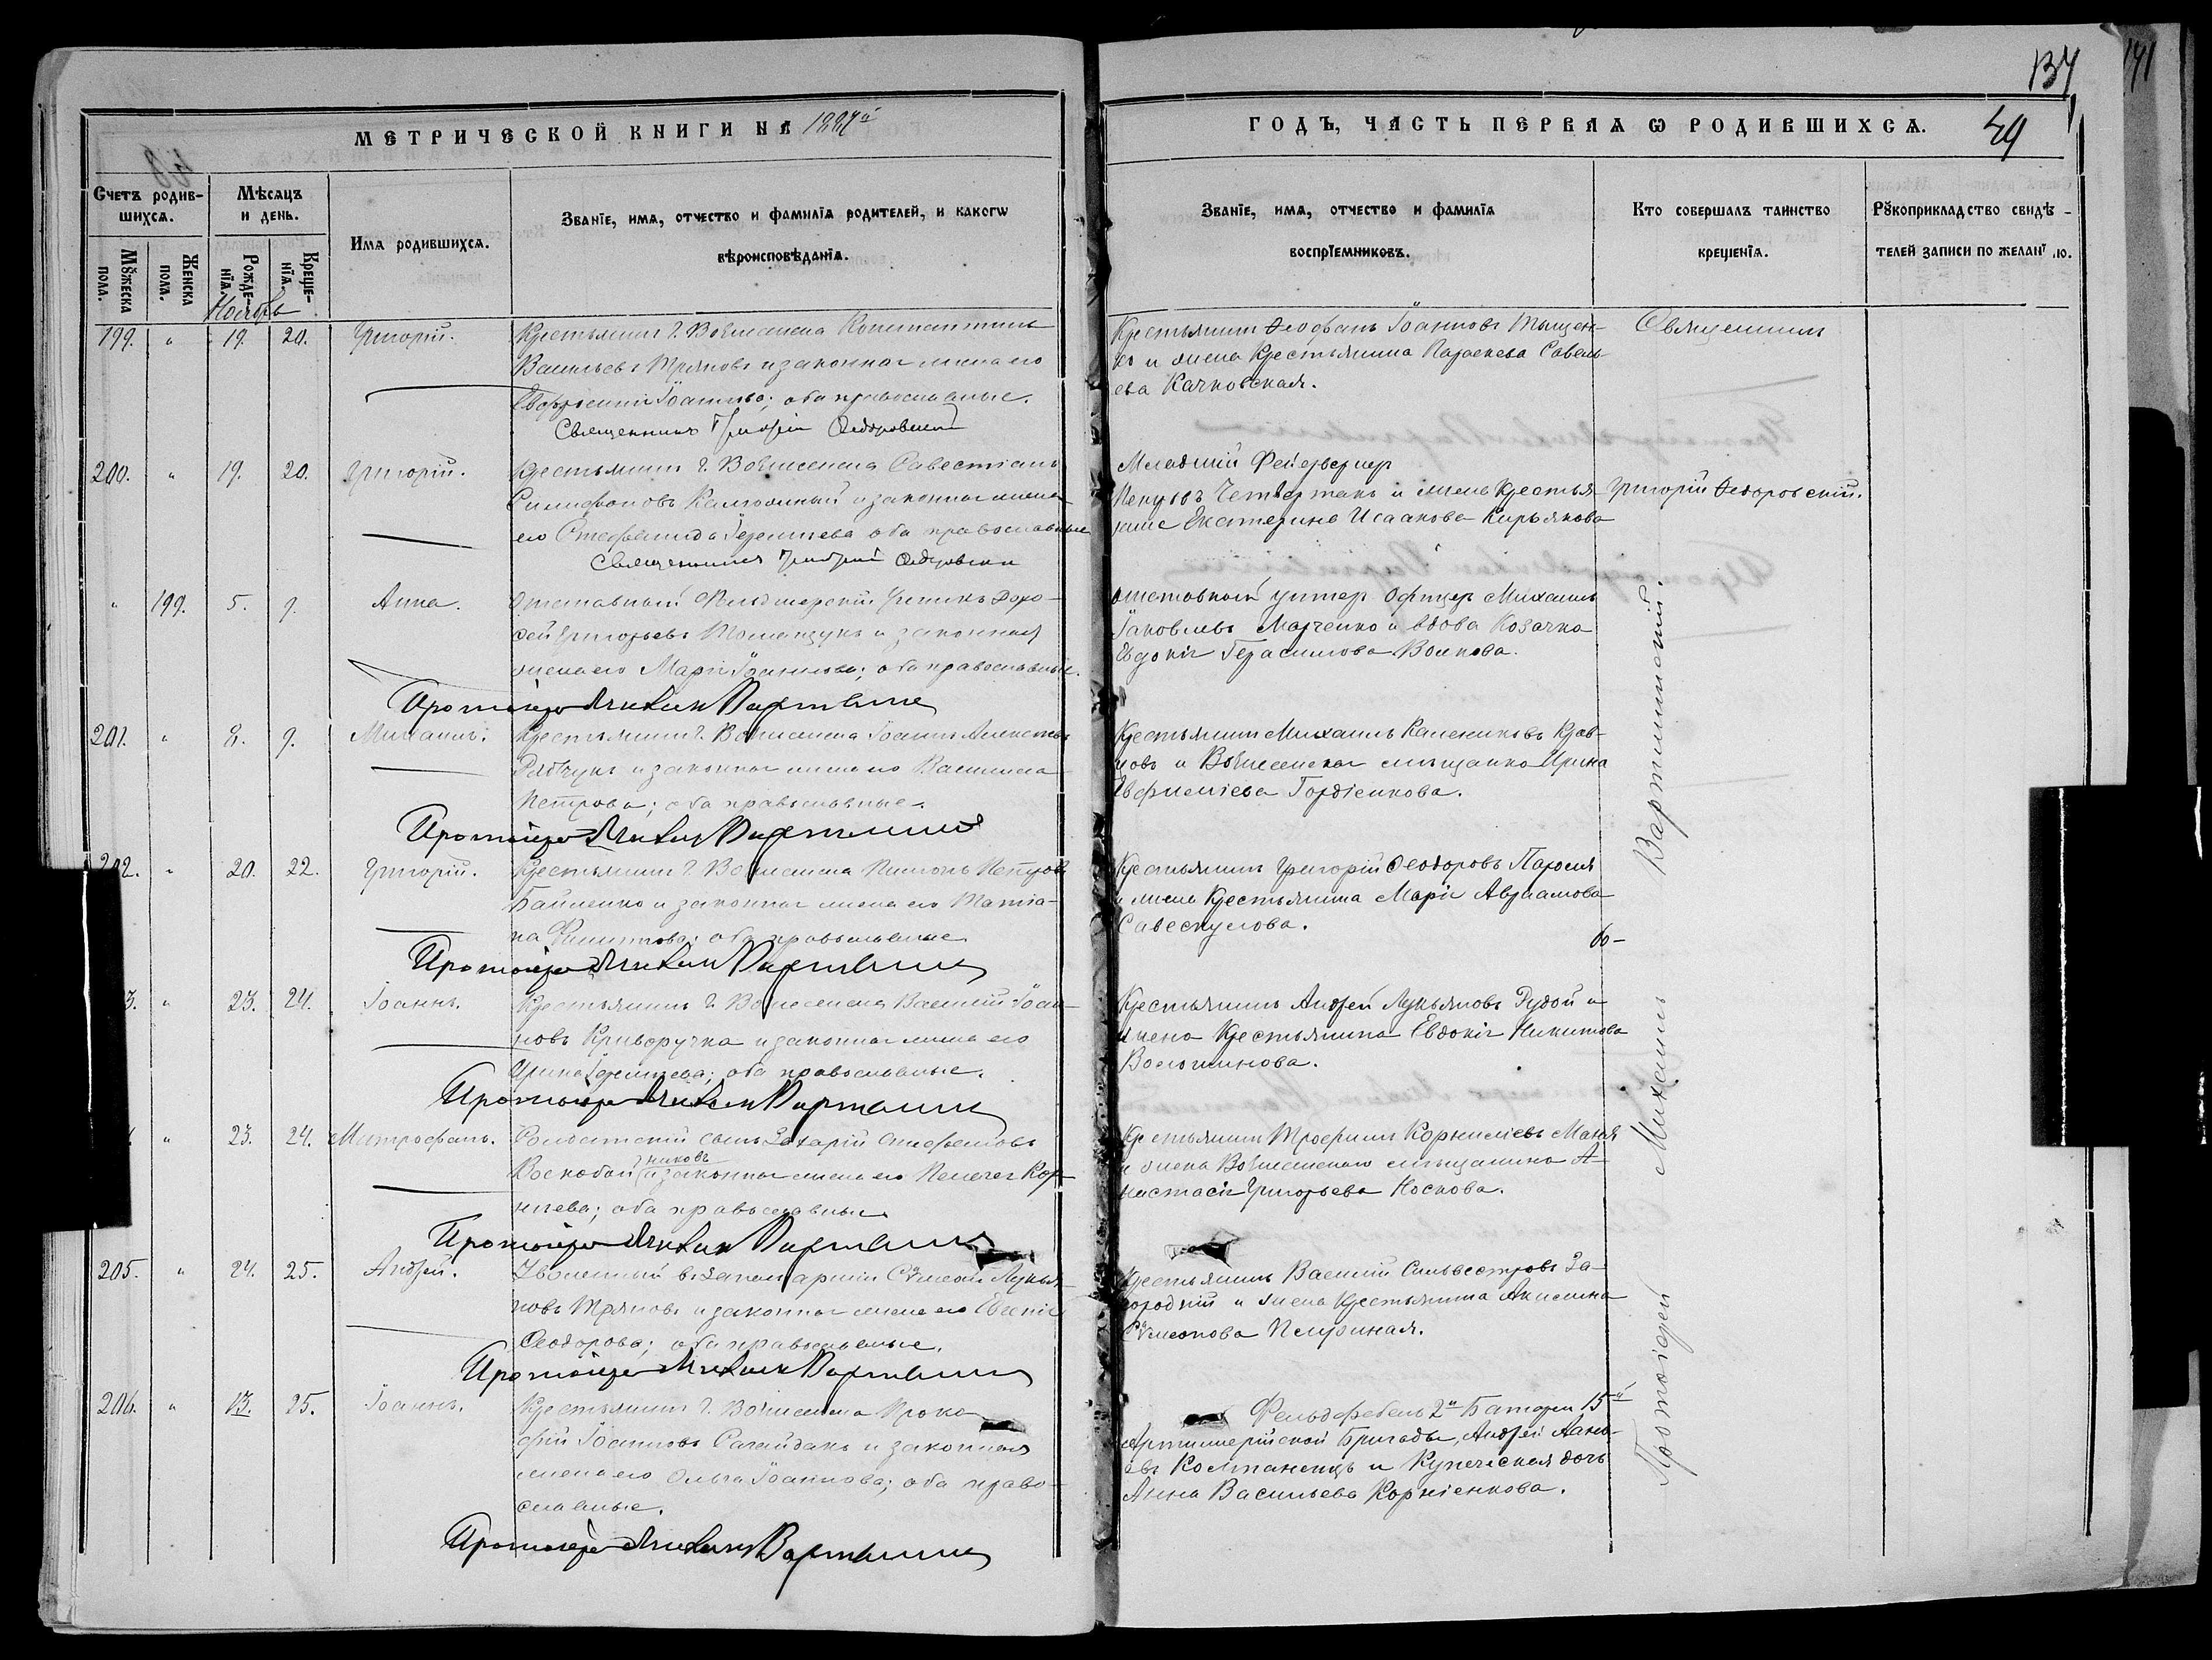 МЕТРИЧЕСКОЙ КНИГИ НА 1887й
ГОДЪ, ЧАСТЬ ПЕРВАЯ Ѡ РОДИВШИХСЯ.
137
49
141
Счетъ родившихся.
Мѣсяцъ и день.
Мꙋжеска пола.
Женска пола.
Рожденїя.
Крещенїя.
Имя родившихся.
Званїе, имя, отчество и фамилїя родителей, и какогѡ
вѣроисповѣданїя.
Званїе, имя, отчество и фамилїя
воспрїемниковъ.
Кто совершалъ таинство
крещенїя.
Рꙋкоприкладство свидѣ-
телей записи по желанїю.
Ноябрь
199. " 19. 20. Григорій.
Крестьянинъ г. Вознесенска Константинъ
Васильевъ Тряновъ и законная жена его
Евфросинія Іоаннова; оба православные.
Священникъ Григорій Ѳедоровскій
Крестьянинъ Ѳеофанъ Іоанновъ Тыщен-
ко и жена Крестьянина Параскева Савель-
ева Качковская.
Священникъ
200. " 19. 20. Григорій.
Крестьянинъ г. Вознесенска Савестіанъ
его Стефанида оба православные
Священникъ Григорій Ѳедоровскій
Младшій Фейерверкер
Четвертакъ и жена Крестья-
нина Екатерина Исаакова Кирьякова
Григорій Ѳедоровскій.
" 199. 5. 9. Анна.
Отставный Фельдшерскій Ученикъ Доро-
фей Григорьевъ Томащукъ и законная
жена его Марія Іоаннова; оба православные.
Протоіерей Михаилъ Вартминскій
отставной унтер Офицер Михаилъ
Іаковлевъ Марченко и вдова Козачка
Евдокія Герасимова Волкова.
201. " 8. 9. Михаилъ.
Крестьянинъ г. Вознесенска Іоаннъ Алексѣевъ
Рябчукъ и законная жена его Василиса
Петрова; оба православные.
Протоіерей Михаилъ Вартминскій
Крестьянинъ Михаилъ Крав-
цовъ и Вознесенская мѣщанка Ирина
Евфиміева Гордіенкова.
202. " 20. 22. Григорій.
Крестьянинъ г. Вознесенска Петровъ
Байленко и законная жена его Татіа-
на Филиппова; оба православные
Протоіерей Михаилъ Вартминскій
Крестьянинъ Григорій Ѳеодоровъ
и жена Крестьянина Марія Авраамова
Савескулова.
203. " 23. 24. Іоаннъ.
Крестьянинъ г. Вознесенска Василій Іоан-
новъ Криворучка и законная жена его
Ирина; оба православные.
Протоіерей Михаилъ Вартминскій
Крестьянинъ Андрей Лукьяновъ Рудой и
жена Крестьянина Евдокія Никитова
Волошинова.
" 23. 24. Митрофанъ.
Солдатскій сынъ Захарій Стефановъ
Воскобойниковъ и законная жена его Пелагея Кор-
ніева; оба православные
Протоіерей Михаилъ Вартминскій
Крестьянинъ Трофимъ Корниліевъ
и жена Вознесенскаго мѣщанина А-
настасія Григорьева Носкова.
205. " 24. 25. Андрей.
Уволенный въ запасъ арміи Симеонъ Лукья-
новъ Тряновъ и законная жена его Евгенія
Ѳеодорова; оба православные.
Протоіерей Михаилъ Вартминскій
Крестьянинъ Василій Сильвестровъ За-
городній и жена Крестьянина Акилина
Симеонова
206. " 13. 25. Іоаннъ.
Крестьянинъ г. Вознесенска Проко-
фій Іоанновъ Сагайдакъ и законная
жена его Ольга Іоаннова; оба право-
славные.
Протоіерей Михаилъ Вартминскій
Фельдфебель 2й Батареи 15й
Артиллерійской Бригады, Андрей
и Купеческая дочь
Анна Васильева Корніенкова.
Протоіерей Михаилъ Вартминскій.